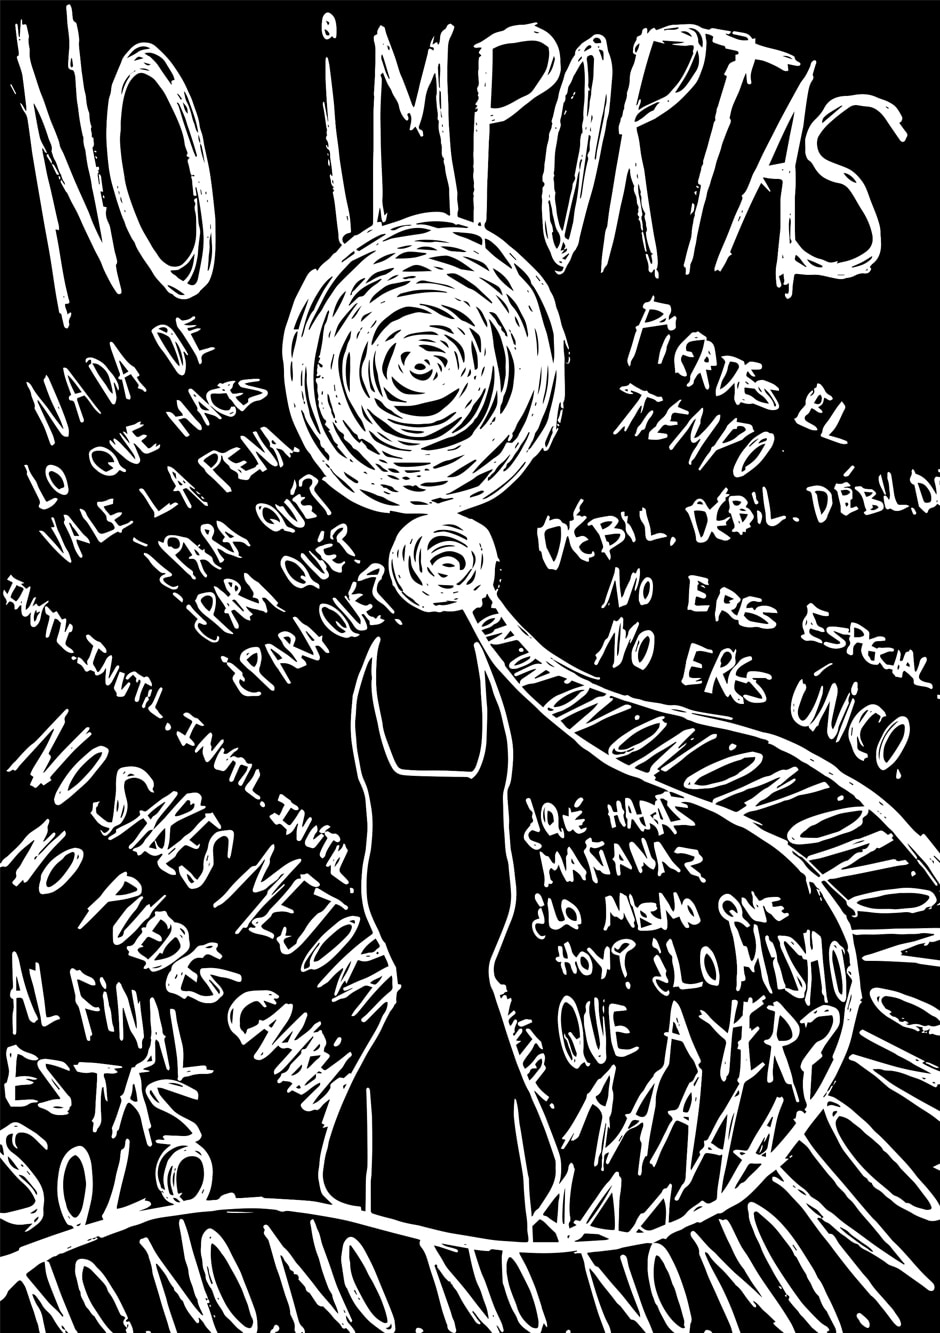 NO IMPORTAS
NADA DE
LO QUE HACES
VALE LA PENA.
¿PARA QUÉ?
¿PARA QUÉ?
¿PARA QUÉ?
PIERDES EL
TIEMPO
DÉBIL. DÉBIL. DÉBIL. DÉ
NO ERES ESPECIAL.
NO ERES ÚNICO.
INÚTIL. INÚTIL. INÚTIL. INÚTIL.
NO SABES MEJORAR
NO PUEDES CAMBIAR
AL FINAL
ESTÁS
SOLO.
¿QUÉ HARÁS
MAÑANA?
¿LO MISMO QUE
HOY? ¿LO MISMO
QUE AYER?
AAAAAA
AAAA
NO. NO. NO. NO. NO. NO. NO. NO. NO. NO. NO. NO. NO. NO. NO. NO. NO. NO. NO. NO.